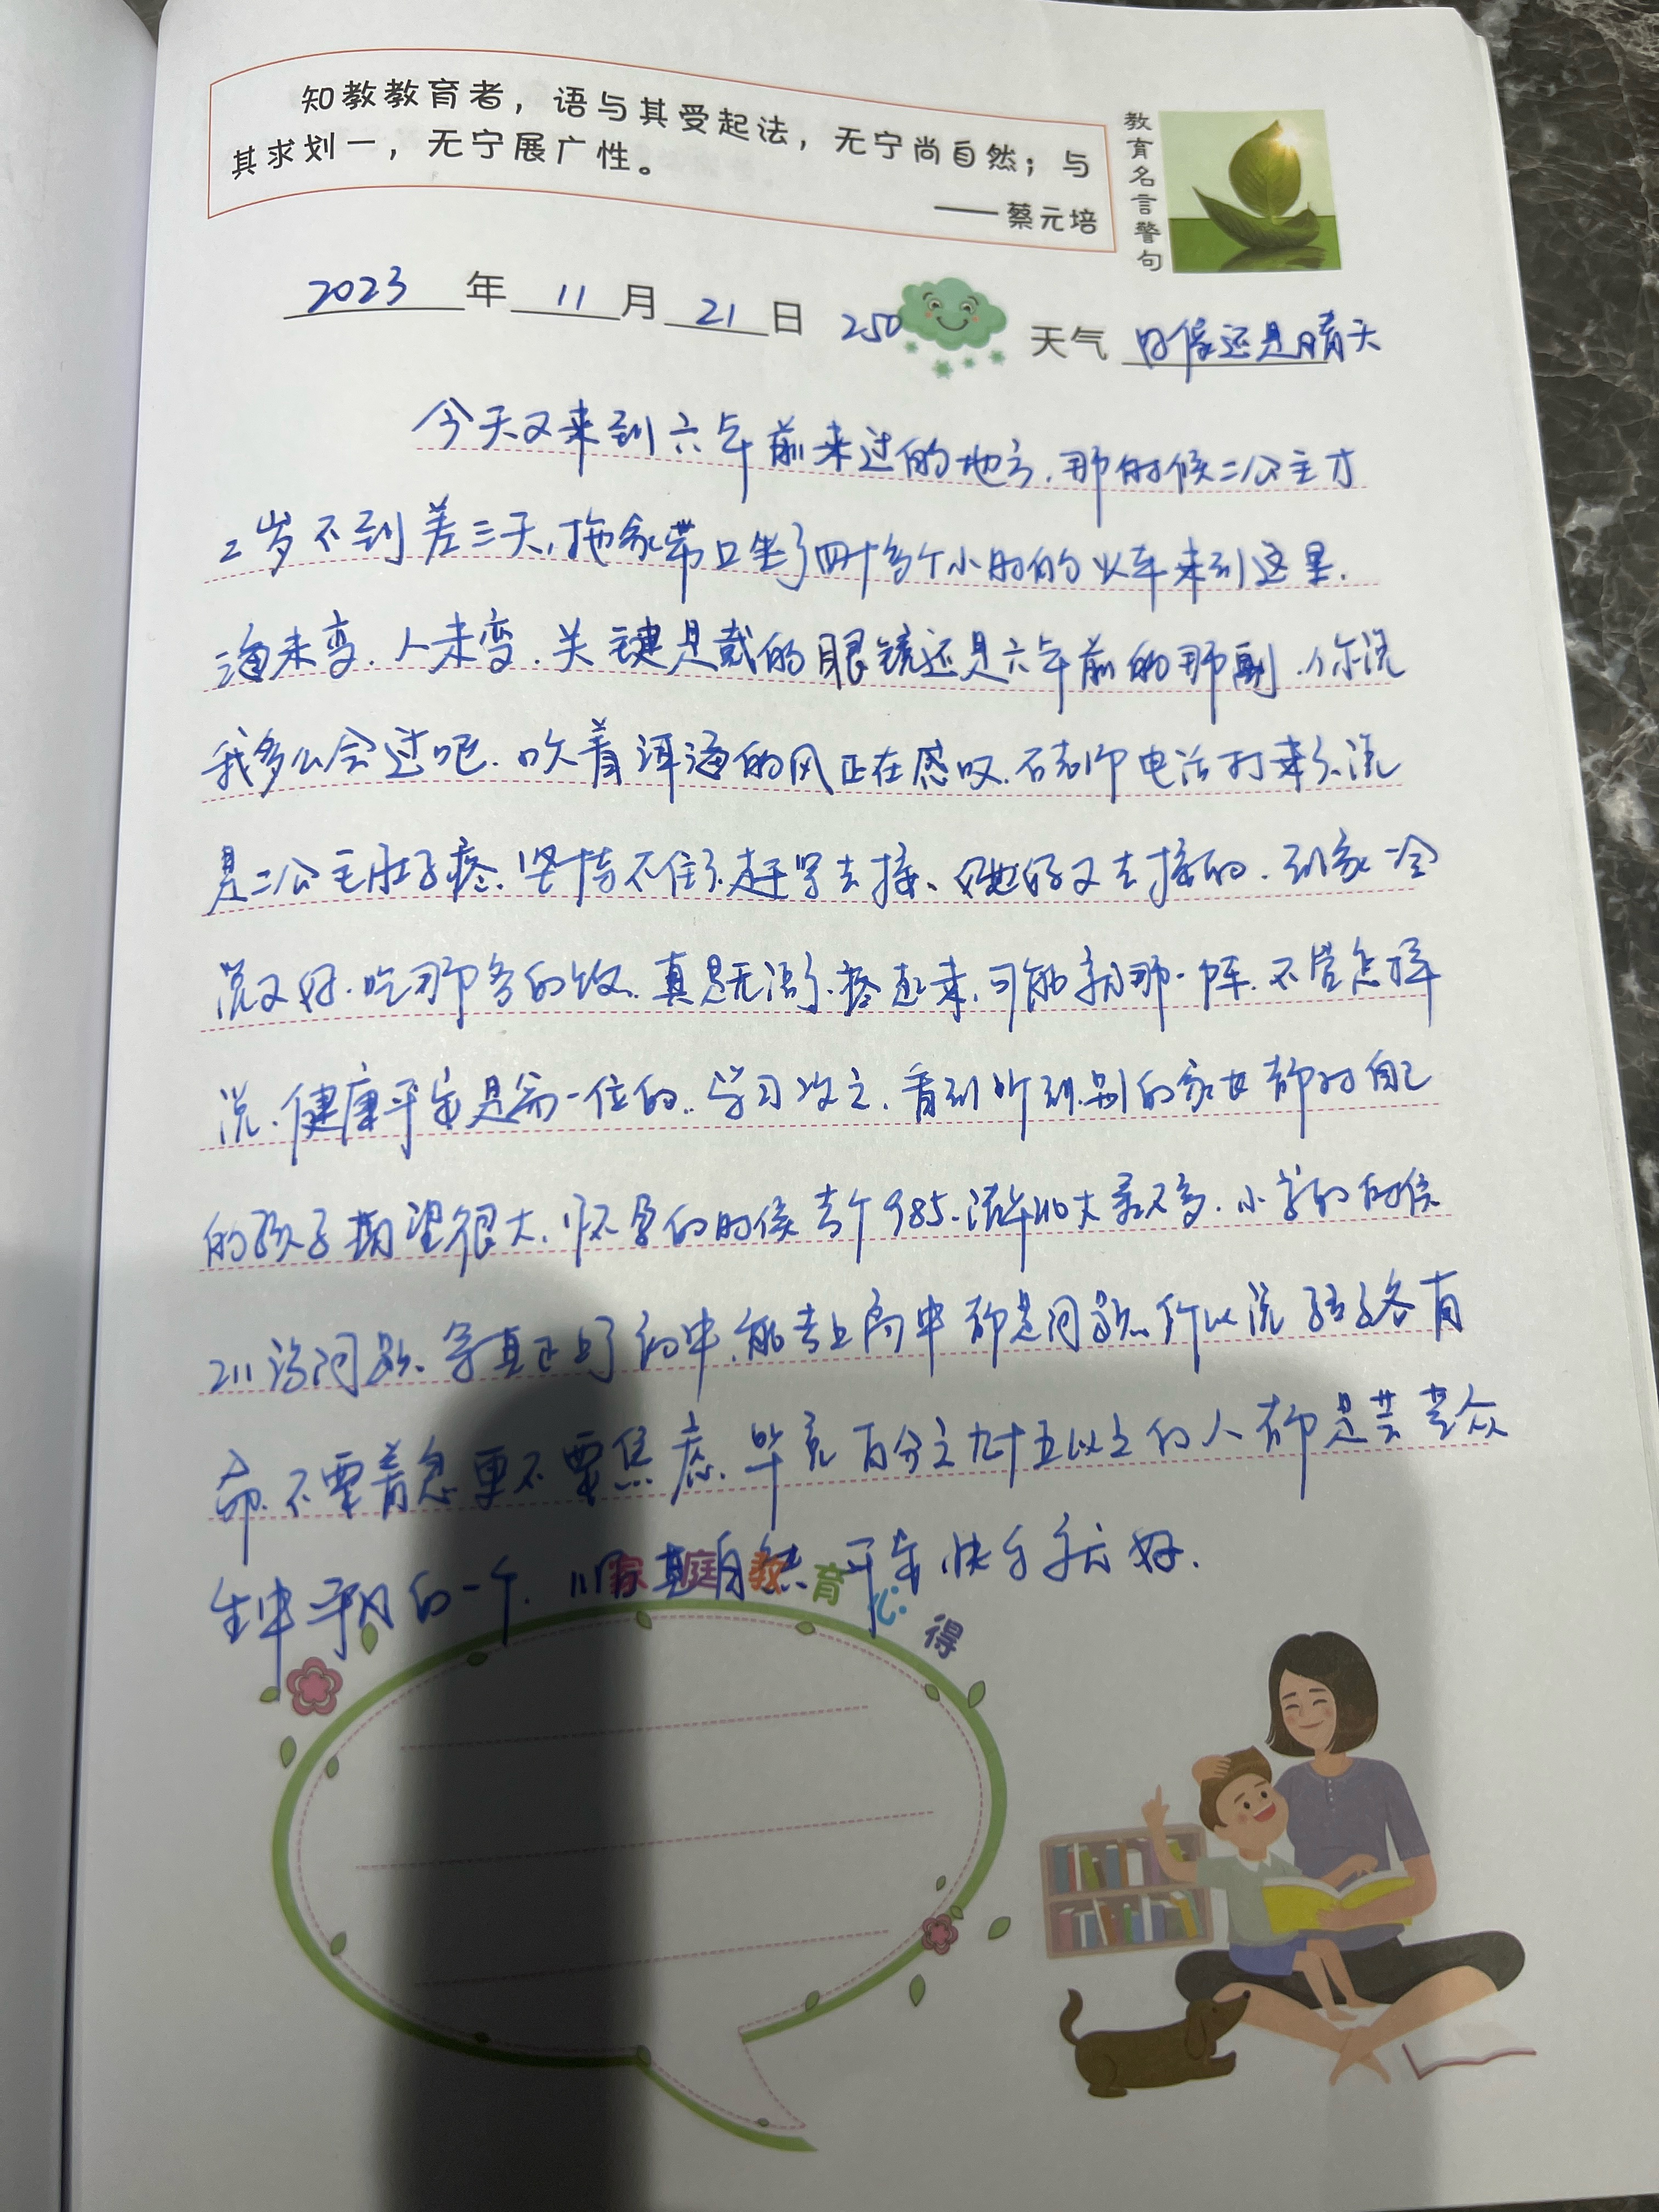 知教教育者，语与其受起法，无宁尚自然；与
其求划一，无宁展广性。
——蔡元培
教育名言警句
2023年11月21日 250 天气 好像还是晴天
今天又来到六年前来过的地方.那时候二公主才
2岁不到差三天,拖家带口坐了四十多个小时的火车来到这里.
海未变.人未变.关键是戴的眼镜还是六年前的那副.你说
我多么会过吧.吹着洱海的风正在感叹.石老师电话打来了.说
是二公主肚子疼.坚持不住了.赶紧去接、她好又去接的.到家
说又好.吃那多的饭.真是无语了.疼起来,可能就那一阵.不管怎样
说.健康平安是第一位的.学习次之.看到听到.别的家长都对自己
的孩子期望很大.怀孕的时候考个985.清华北大差不多.小学的时候
211没问题、等真正上了初中.能考上高中都是问题.所以说孩子各有
命.不要着急更不要焦虑.毕竟百分之九十五以上的人都是芸芸众
生中平凡的一个.顺其自然平安快乐就好.
家庭教育心得